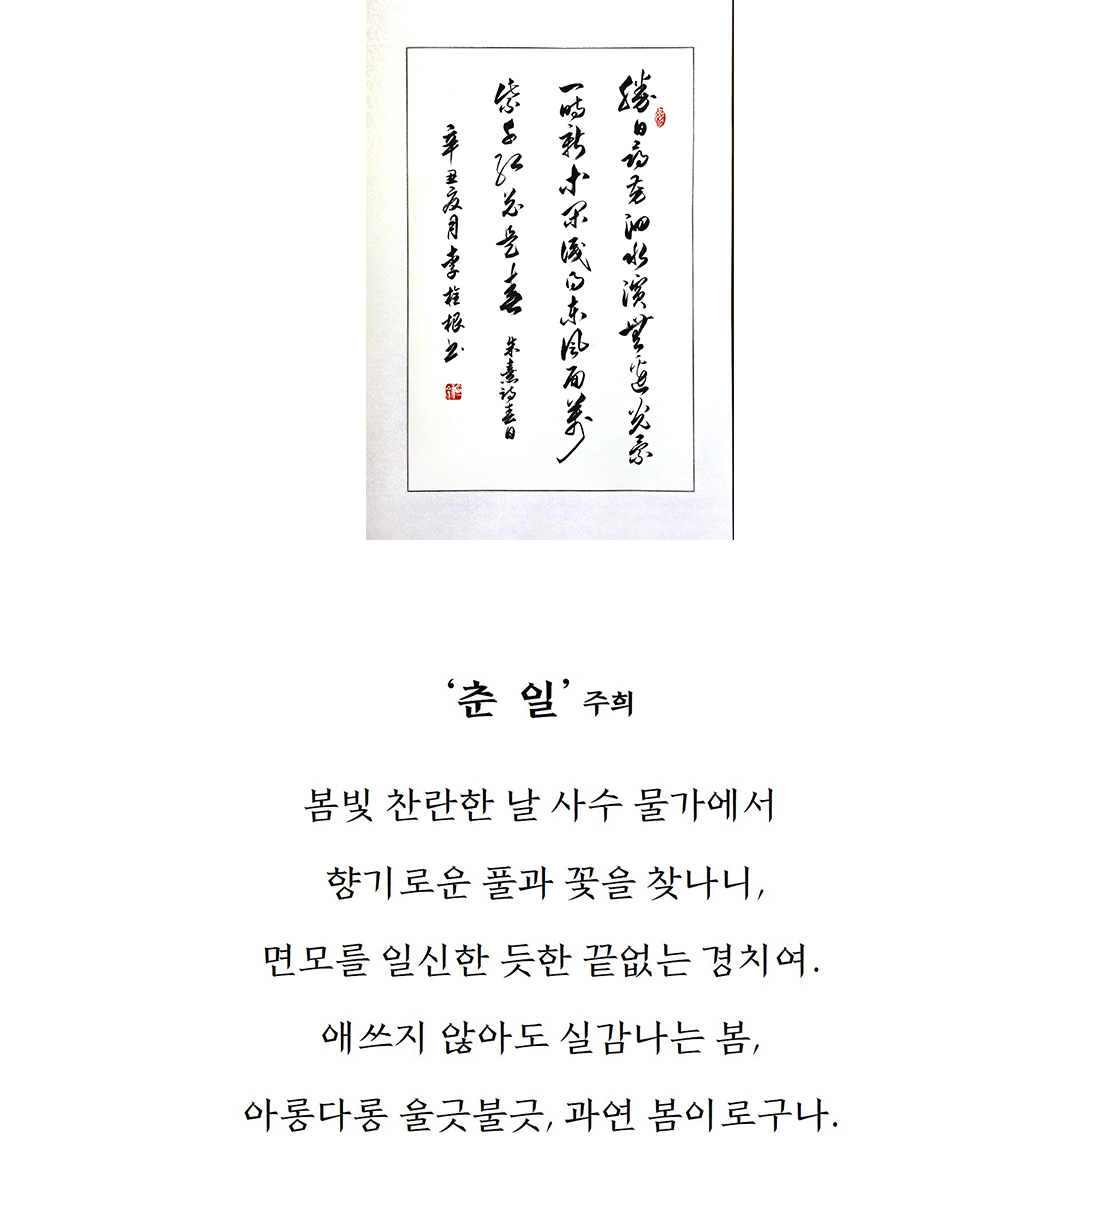 勝日尋芳泗水濱無邊光景
一時新等閒識得東風面萬
紫千紅總是春 朱熹詩春日
辛丑夏月李根书
‘춘 일’ 주희
봄빛 찬란한 날 사수 물가에서
향기로운 풀과 꽃을 찾나니,
면모를 일신한 듯한 끝없는 경치여.
애쓰지 않아도 실감나는 봄,
아롱다롱 울긋불긋, 과연 봄이로구나.